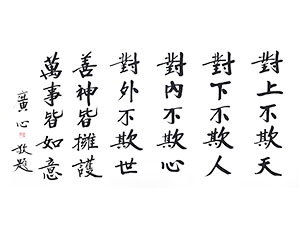 對上不欺天
對下不欺人
對內不欺心
對外不欺世
善神皆擁護
萬事皆如意
廣心敬題